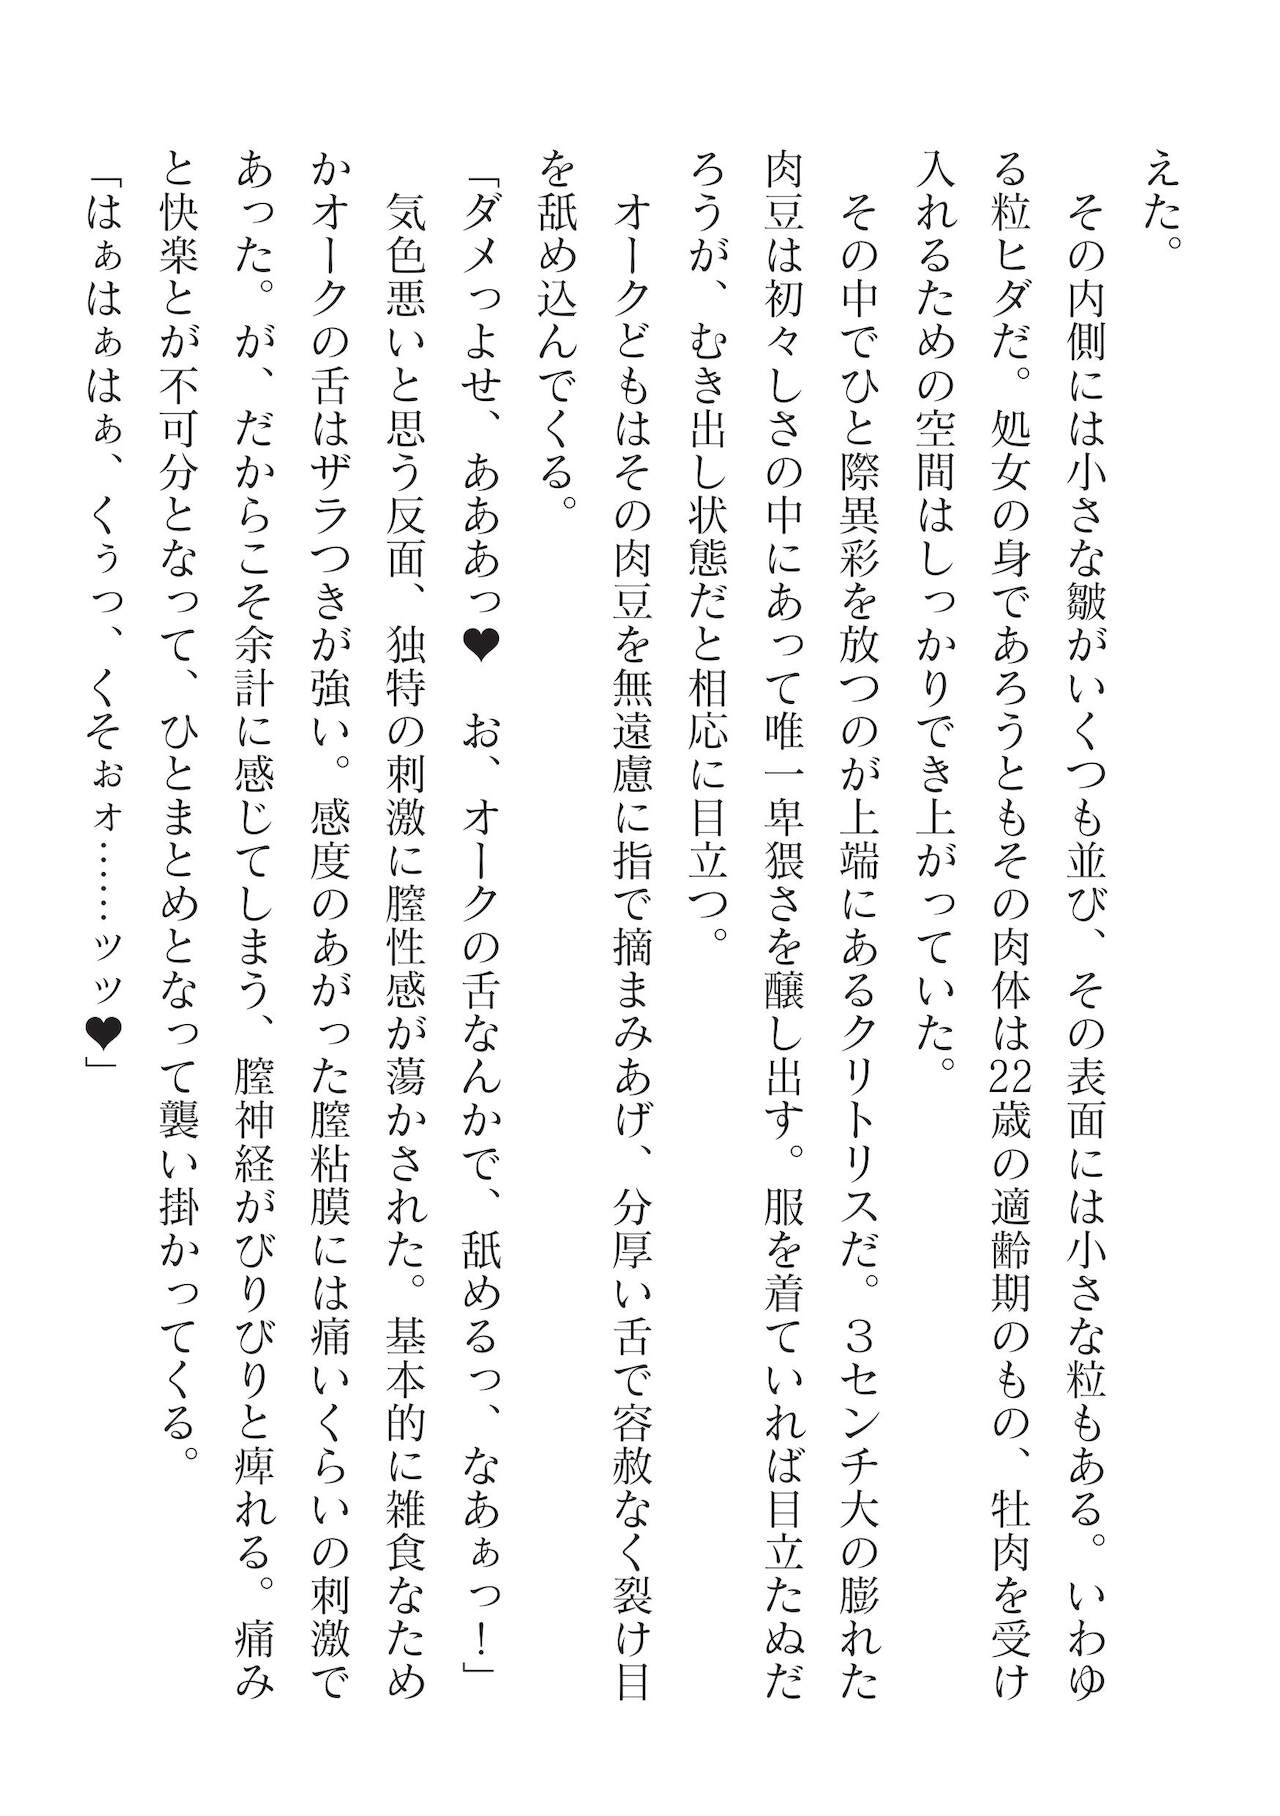 えた。
その内側には小さな皺がいくつも並び、その表面には小さな粒もある。いわゆ
る粒ヒダだ。処女の身であろうともその肉体は22歳の適齢期のもの、牡肉を受け
入れるための空間はしっかりでき上がっていた。
その中でひと際異彩を放つのが上端にあるクリトリスだ。３センチ大の膨れた
肉豆は初々しさの中にあって唯一卑猥さを醸し出す。服を着ていれば目立たぬだ
ろうが、むき出し状態だと相応に目立つ。
オークどもはその肉豆を無遠慮に指で摘まみあげ、分厚い舌で容赦なく裂け目
を舐め込んでくる。
「ダメっよせ、あああっ♥　お、オークの舌なんかで、舐めるっ、なあぁっ！」
気色悪いと思う反面、独特の刺激に膣性感が蕩かされた。基本的に雑食なため
かオークの舌はザラつきが強い。感度のあがった膣粘膜には痛いくらいの刺激で
あった。が、だからこそ余計に感じてしまう、膣神経がびりびりと痺れる。痛み
と快楽とが不可分となって、ひとまとめとなって襲い掛かってくる。
「はぁはぁはぁ、くぅっ、くそぉォ……ッッ♥」